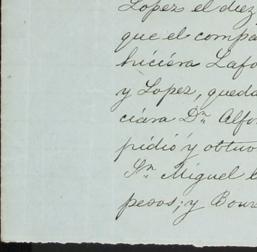 Lopez el diez
que el compa
hiciéra Lafo
y Lopez, queda
ciára Dn Alfo
pidió y obtuvo
Sn Miguel
pesos; y Bour